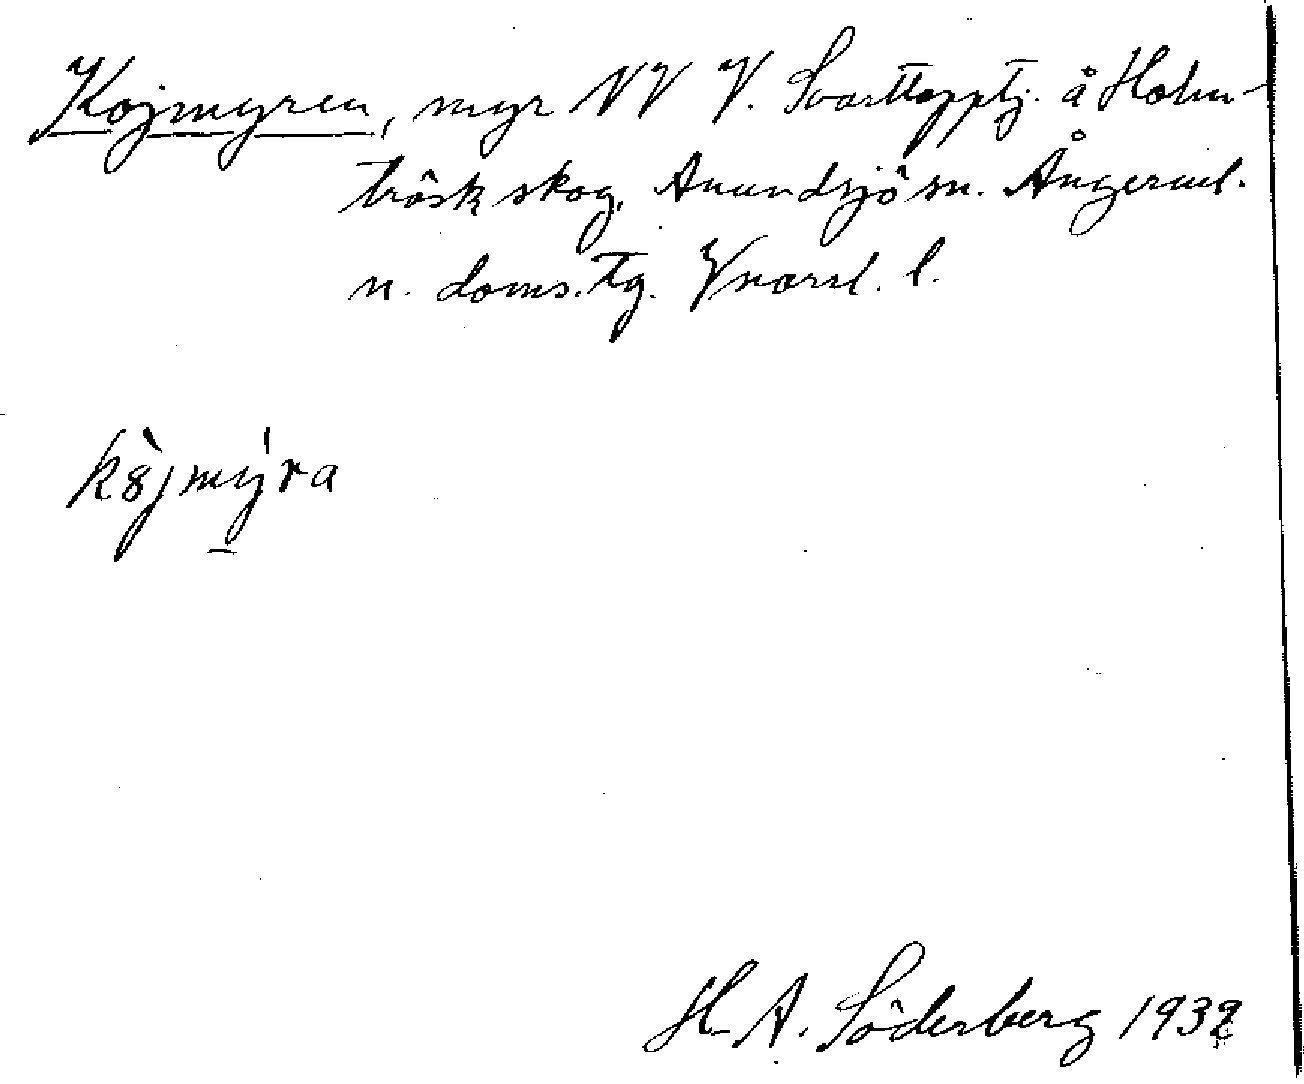 Kojmyren, myr NV V. Svarttopptj. å Holm-
träsk skog, Anundsjö sn. Ångerml.
n. doms. tg. Vnorrl. l.
kòjmýra
H. A. Söderberg 1932